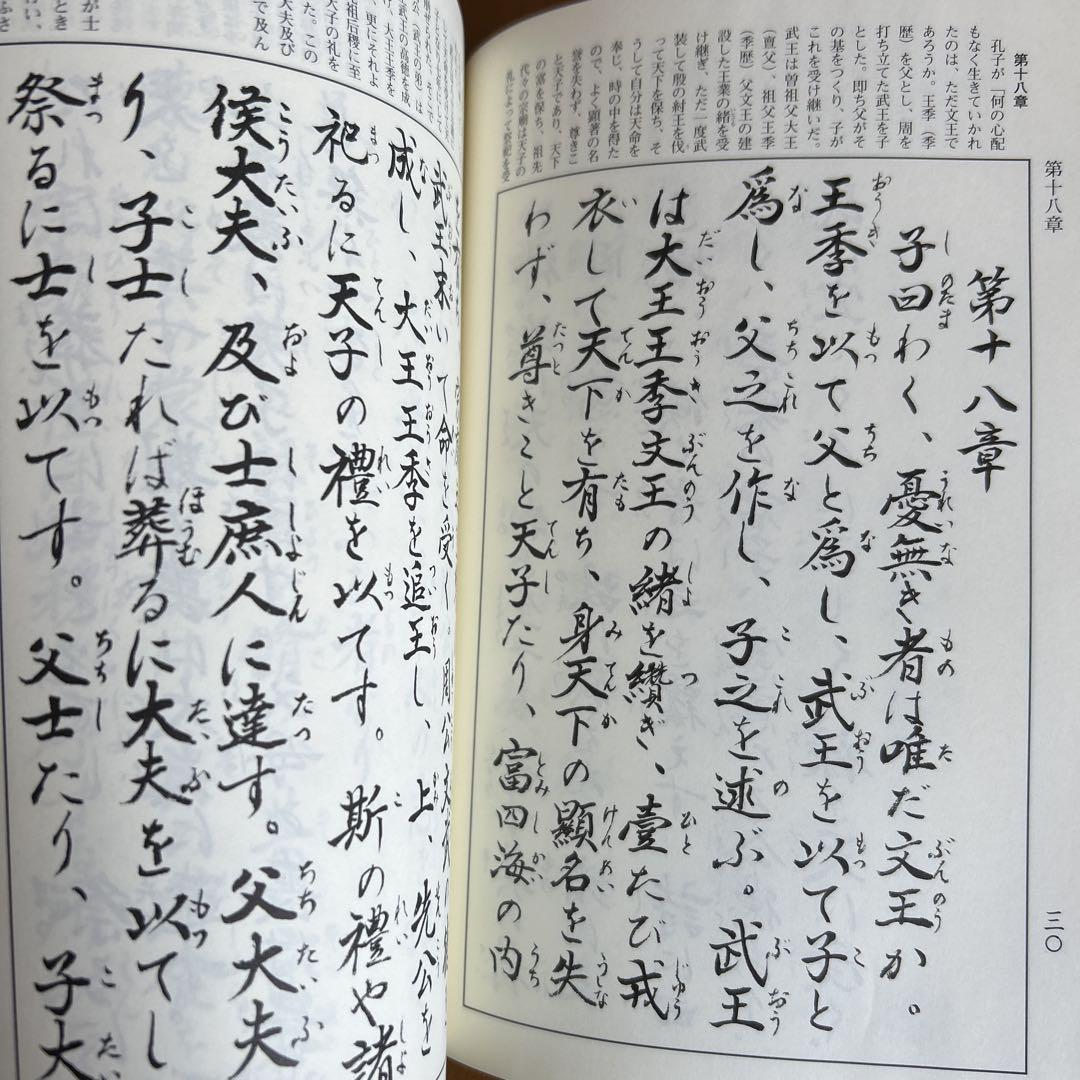 第十八章
三〇
第十八章
孔子が「何の心配
もなく生きていかれ
たのは、ただ文王で
あろうか。王季（季
歴）を父とし、周を
打ち立てた武王を子
とした。即ち父がそ
の基をつくり、子が
これを受け継いだ。
武王は曽祖父大王
（亶父）、祖父王季
（季歴）、父文王の建
設した王業の緒を受
け継ぎ、ただ一度武
装して殷の紂王を伐
って天下を保ち、そ
うして自分は天命を
奉じ、時の中を得た
ので、よく顕著の名
誉を失わず、尊きこ
と天子であり、天下
の富を保ち、祖先
代々の宗廟は天子の
礼によって祭祀を受
第十八章
子曰わく、憂無き者は唯だ文王か。
王季を以て父と爲し、武王を以て子と
爲し、父之を作し、子之を述ぶ。武王
は大王王季文王の緒を纘ぎ、壹たび戎
衣して天下を有ち、身天下の顯名を失
わず、尊きこと天子たり、富四海の内
公（武王の弟）は
武王の意徳を成
け、大王王季を
更にそれよ
祖后稷に至
天子の礼を
た。この
大夫及び
で及ん
武王末いて命を受く。周公
成し、大王王季を追王し、上、先公を
祀るに天子の禮を以てす。斯の禮や諸
侯大夫、及び士庶人に達す。父大夫
り、子士たれば葬るに大夫を以てし
祭るに士を以てす。父士たり、子大